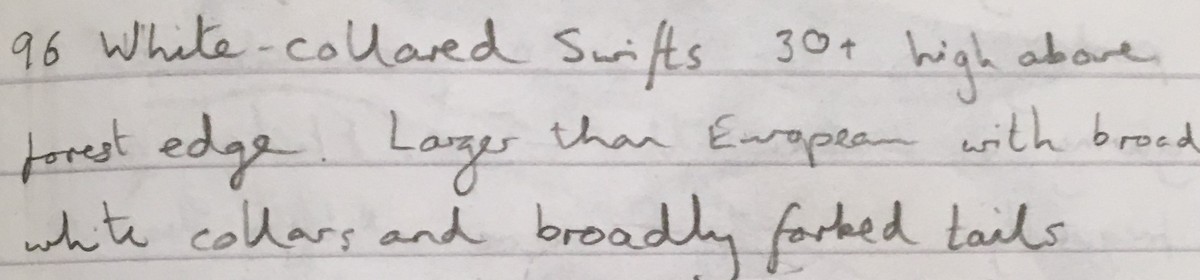 96 White-collared Swifts 30+ high above
forest edge. Larger than European with broad
white collars and broadly forked tails